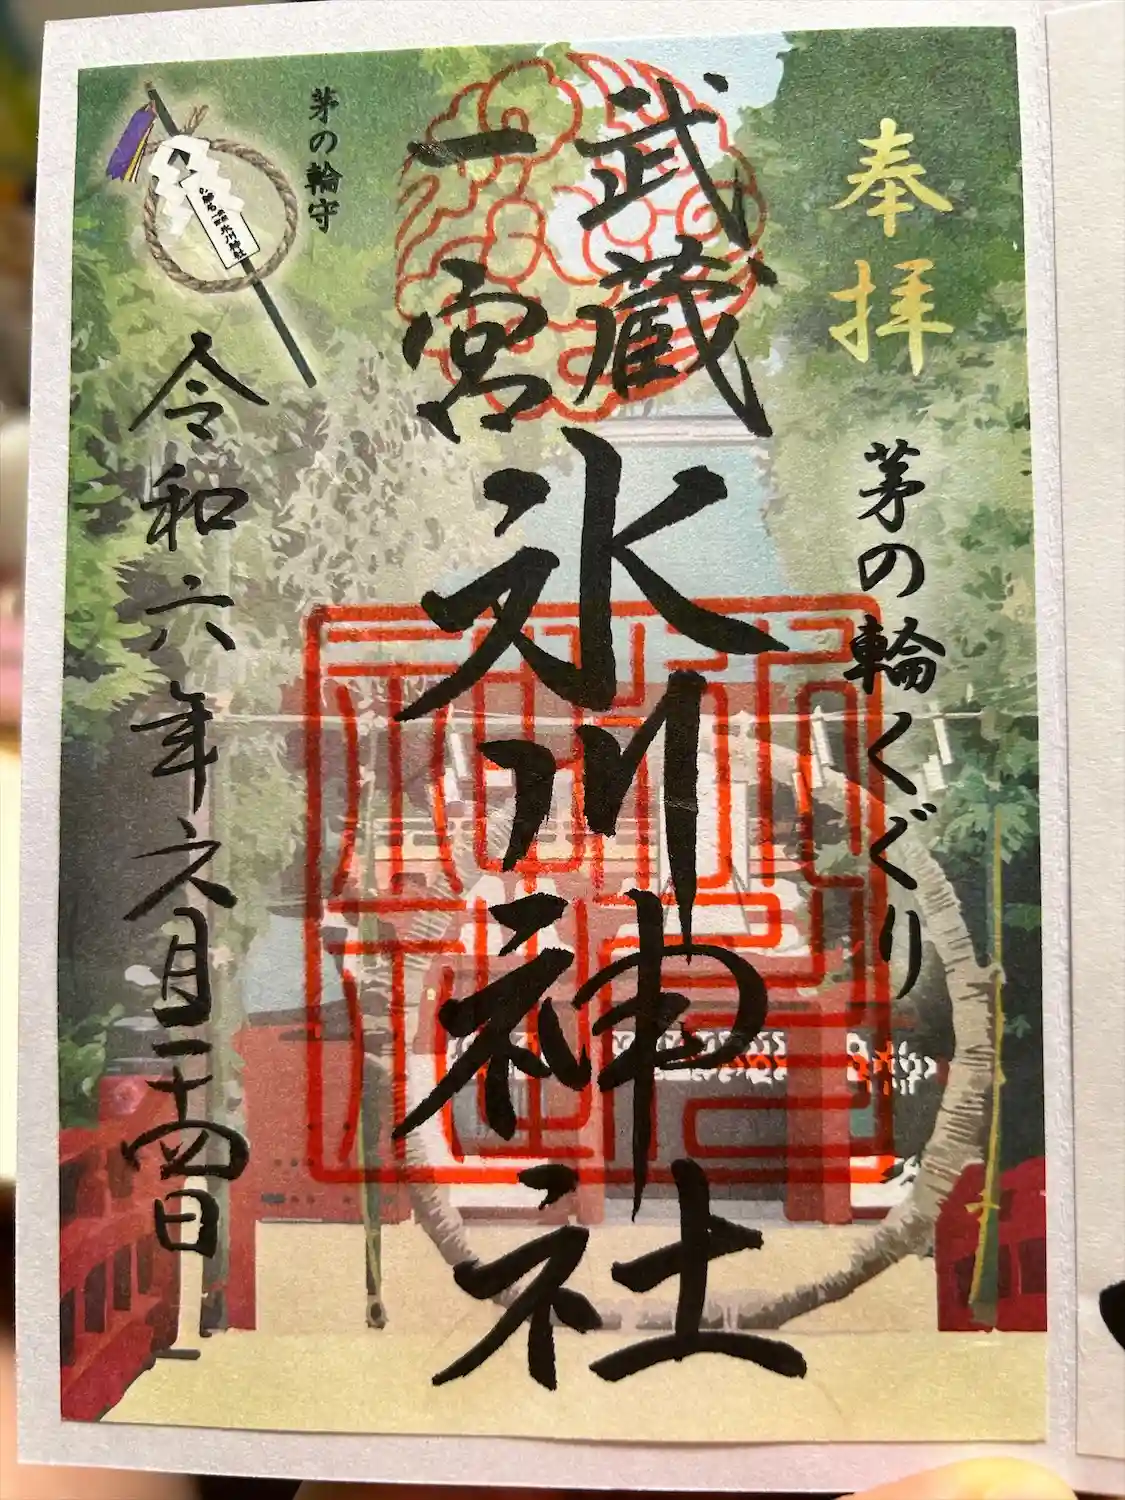 奉拝
茅の輪くぐり
武蔵
一宮
氷川神社
茅の輪守
令和六年六月二十四日